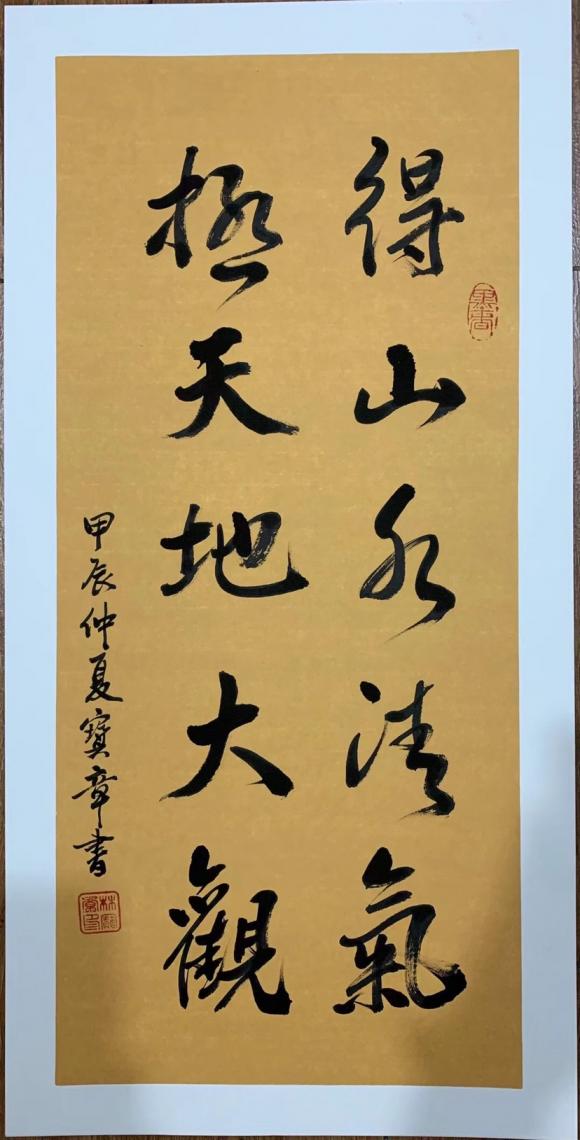 得山水清氣
極天地大觀
甲辰仲夏寶章書